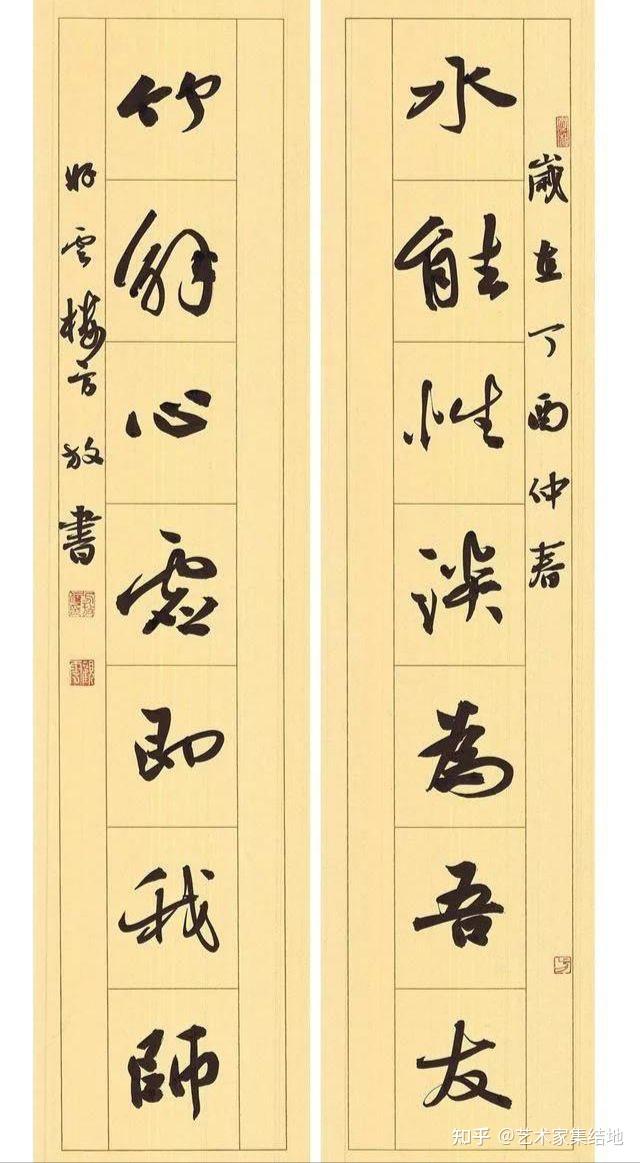 歲在丁酉仲春
水能性淡為吾友
竹解心虛即我師
好雲樓放書
知乎 @艺术家集结地